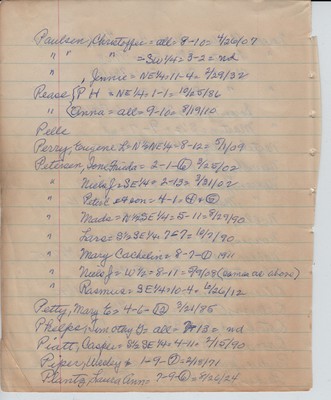 Paulsen, Christoffer = all = 8-10 = 4/26/07
" " " = SW 1/4 = 3-2 = nd
" , Jennie = NE 1/4 = 11-4 = 7/29/32
Rease { P H = NE 1/4 = 1-1 = 10/25/86
" { Anna = all = 9-10 = 8/19/10
Pelle
Perry, Eugene L = N 1/2 NE 1/4 = 8-12 = 5/1/09
Petersen, = 2-1-6 3/25/02
" Niels J = SE 1/4 = 2-13 = 3/31/02
" Peter = 4-1-
" Mads = N 1/2 SE 1/4 = 5-11 =
" Lars = S 1/2 SE 1/4 = 10/7/90
" Mary = 8-7- 1911
" Niels J = W 1/2 = 8-11 = (same as above)
" Rasmus = SE 1/4 = 10-4 = 6/26/12
Petty, Mary E = 4-6-(12) 3/21/85
Phelps, Timothy G = all = = nd
Piatt, Casper = S 1/2 SE 1/4 = 4-11 = 2/15/90
Piper, Wesley = 1-9-
Plantz, Laura Ann = 7-9-(6) = 2/26/24